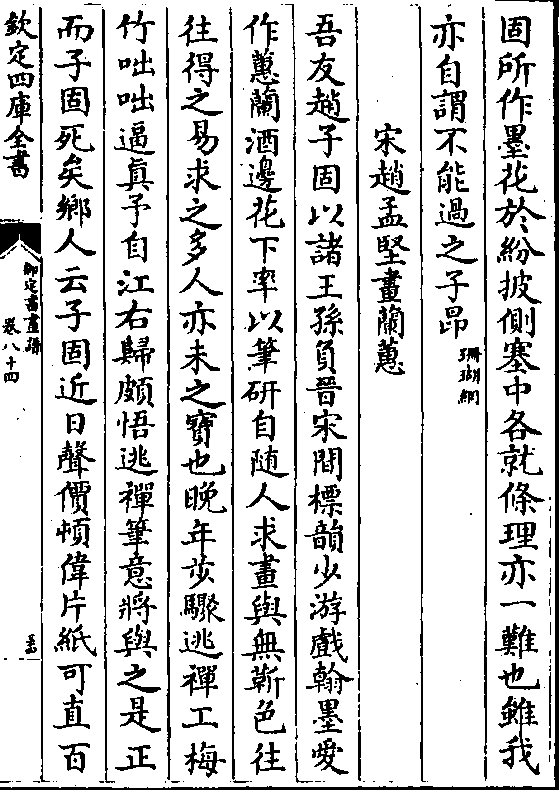 固所作墨花於紛披側塞中各就條理亦一難也雖我
亦自謂不能過之子昂珊瑚網
宋趙孟堅畫蘭蕙
吾友趙子固以諸王孫負晉宋間標韻少游戲翰墨愛
作蕙蘭酒邊花下率以筆硏自随人求畫與無靳色往
往得之易求之多人亦未之寶也晚年步驟逃禪工梅
竹咄咄逼真予自江右歸頗悟逃禪筆意將與之是正
而子固死矣鄉人云子固近日聲價頓偉片紙可直百
欽定四庫全書
御定書畫譜
卷八十四